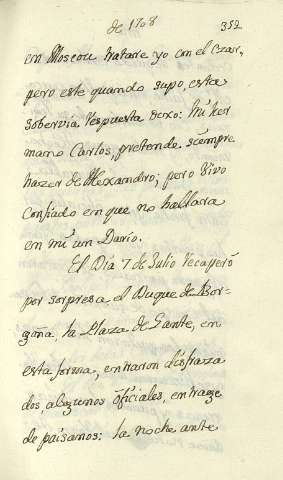 de 1708
352
en Moscou tratare yo con el Czar,
pero este quando supo, esta
sobervia respuesta dixo: mi her
mano Carlos, pretende siempre
hazer de Alexandro; pero vivo
confiado en que no hallara
en mi un Dario.
El Dia 7 de Julio recaperó
por sorpresa el Duque de Bor-
goña la Plaza de Gante, en
esta forma, entraron disfraza
dos, algunos oficiales, en trage
de paisanos: la noche ante